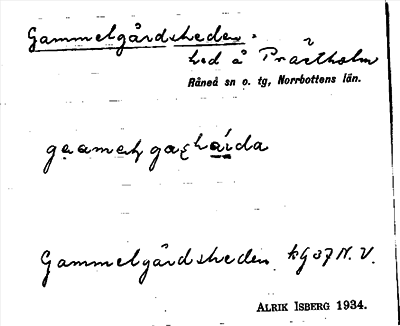 Gammelgårdsheden.
hed å Prästholm
Råneå sn o. tg, Norrbottens län.
Gammelgårdsheden kg 37 N.V.
ALRIK ISBERG 1934.